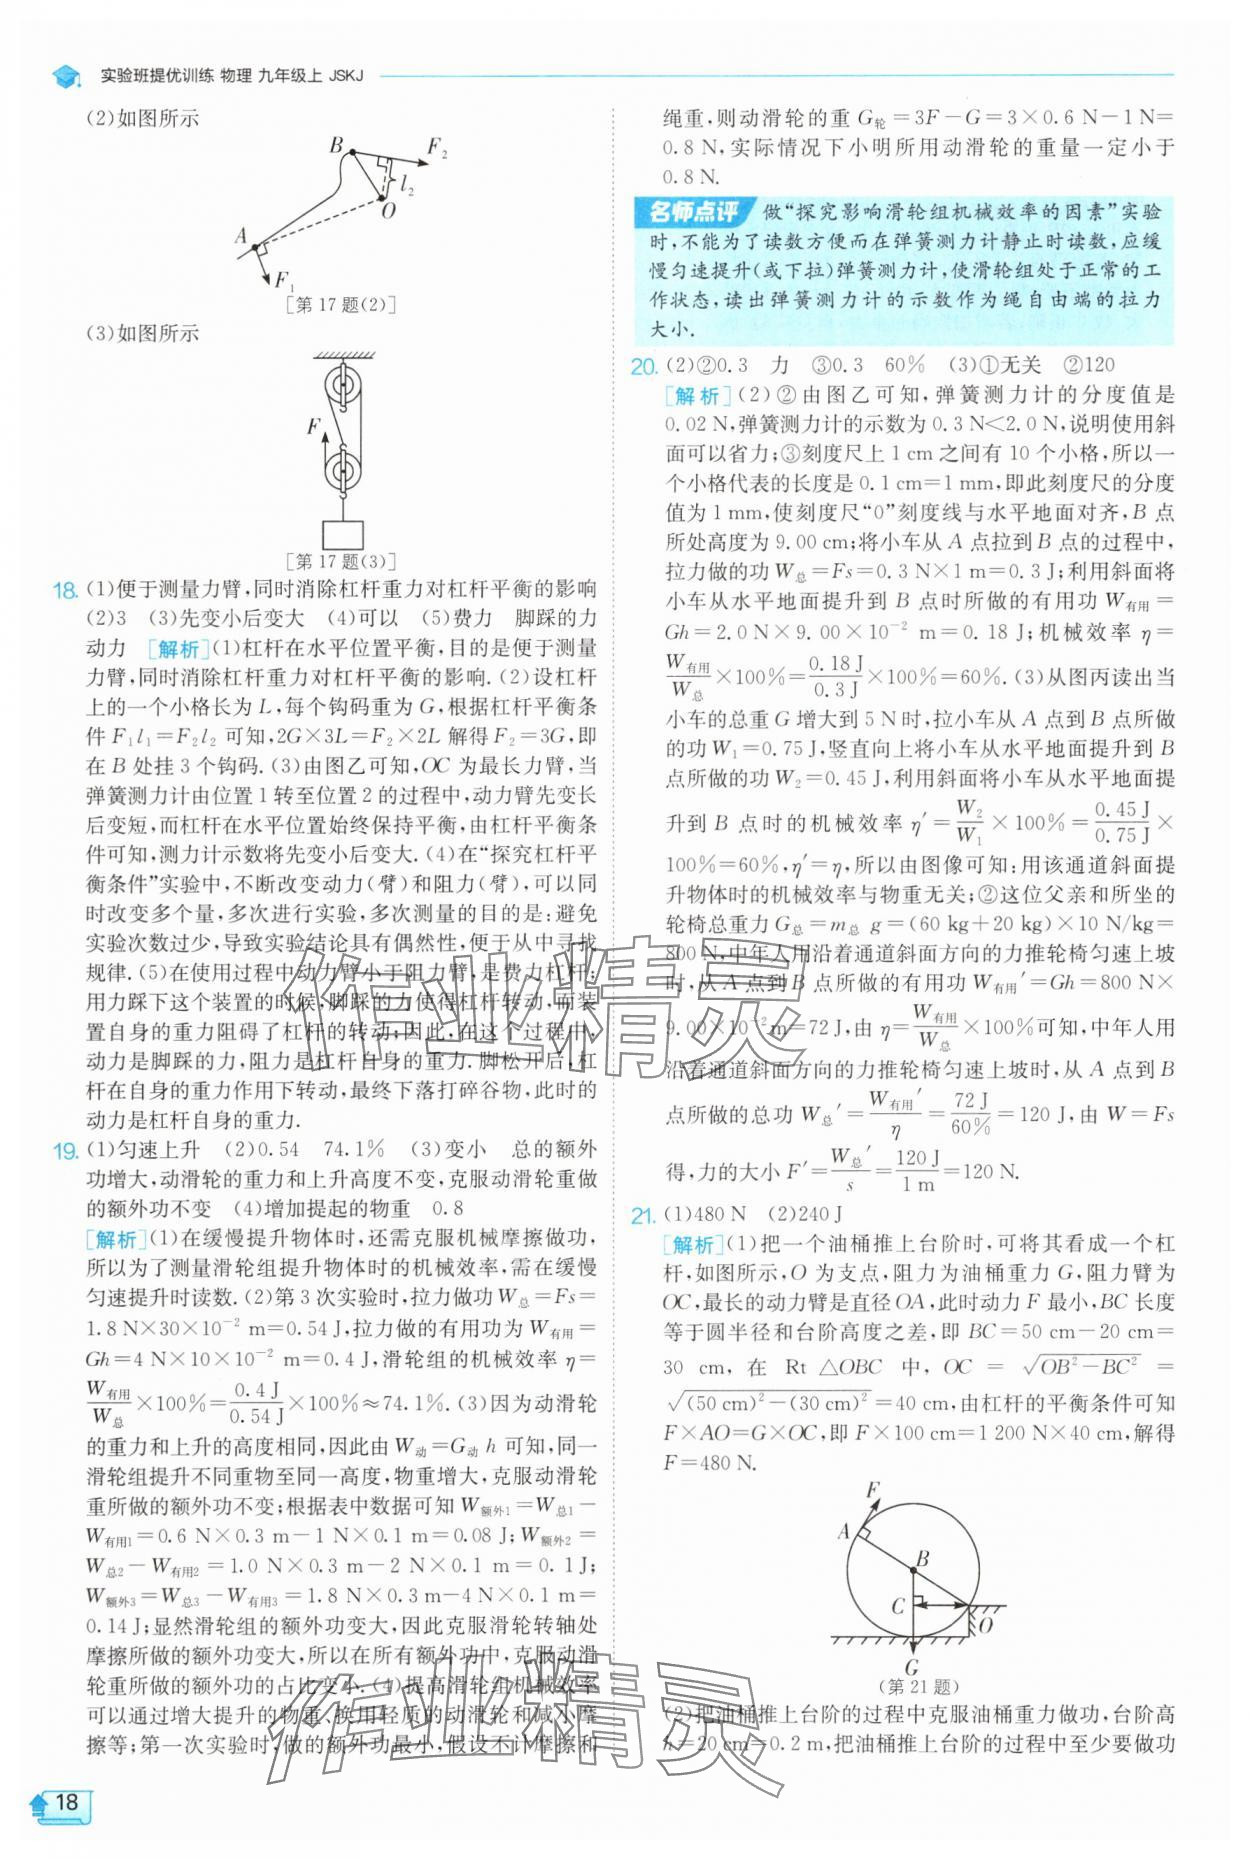 实验班提优训练 物理 九年级上 JSKJ
(2)如图所示
B
F₂
l₂
O
A
F₁
[第17题(2)]
(3)如图所示
F
[第17题(3)]
18. (1)便于测量力臂,同时消除杠杆重力对杠杆平衡的影响
(2)3 (3)先变小后变大 (4)可以 (5)费力 脚踩的力
动力 [解析](1)杠杆在水平位置平衡,目的是便于测量
力臂,同时消除杠杆重力对杠杆平衡的影响.(2)设杠杆
上的一个小格长为L,每个钩码重为G,根据杠杆平衡条
件F₁l₁=F₂l₂可知,2G×3L=F₂×2L解得F₂=3G,即
在B处挂3个钩码.(3)由图乙可知,OC为最长力臂,当
弹簧测力计由位置1转至位置2的过程中,动力臂先变长
后变短,而杠杆在水平位置始终保持平衡,由杠杆平衡条
件可知,测力计示数将先变小后变大.(4)在“探究杠杆平
衡条件”实验中,不断改变动力(臂)和阻力(臂),可以同
时改变多个量,多次进行实验,多次测量的目的是:避免
实验次数过少,导致实验结论具有偶然性,便于从中寻找
规律.(5)在使用过程中动力臂小于阻力臂,是费力杠杆;
用力踩下这个装置的时候,脚踩的力使得杠杆转动,而装
置自身的重力阻碍了杠杆的转动,因此,在这个过程中,
动力是脚踩的力,阻力是杠杆自身的重力.脚松开后,杠
杆在自身的重力作用下转动,最终下落打碎谷物,此时的
动力是杠杆自身的重力.
19. (1)匀速上升 (2)0.54 74.1% (3)变小 总的额外
功增大,动滑轮的重力和上升高度不变,克服动滑轮重做
的额外功不变 (4)增加提起的物重 0.8
[解析](1)在缓慢提升物体时,还需克服机械摩擦做功,
所以为了测量滑轮组提升物体时的机械效率,需在缓慢
匀速提升时读数.(2)第3次实验时,拉力做功W总=Fs=
1.8 N×30×10⁻² m=0.54 J,拉力做的有用功为W有用=
Gh=4 N×10×10⁻² m=0.4 J,滑轮组的机械效率η=
W有用/W总×100%=0.4 J/0.54 J×100%≈74.1%.(3)因为动滑轮
的重力和上升的高度相同,因此由W动=G动h可知,同一
滑轮组提升不同重物至同一高度,物重增大,克服动滑轮
重所做的额外功不变;根据表中数据可知W额外1=W总1-
W有用1=0.6 N×0.3 m-1 N×0.1 m=0.08 J;W额外2=
W总2-W有用2=1.0 N×0.3 m-2 N×0.1 m=0.1 J;
W额外3=W总3-W有用3=1.8 N×0.3 m-4 N×0.1 m=
0.14 J;显然滑轮组的额外功变大,因此克服滑轮转轴处
摩擦所做的额外功变大,所以在所有额外功中,克服动滑
轮重所做的额外功的占比变小.(4)提高滑轮组机械效率
可以通过增大提升的物重、换用轻质的动滑轮和减小摩
擦等;第一次实验时,做的额外功最小,假设不计摩擦和
18
绳重,则动滑轮的重G轮=3F-G=3×0.6 N-1 N=
0.8 N,实际情况下小明所用动滑轮的重量一定小于
0.8 N.
名师点评 做“探究影响滑轮组机械效率的因素”实验
时,不能为了读数方便而在弹簧测力计静止时读数,应缓
慢匀速提升(或下拉)弹簧测力计,使滑轮组处于正常的工
作状态,读出弹簧测力计的示数作为绳自由端的拉力
大小.
20. (2)②0.3 力 ③0.3 60% (3)①无关 ②120
[解析](2)②由图乙可知,弹簧测力计的分度值是
0.02 N,弹簧测力计的示数为0.3 N<2.0 N,说明使用斜
面可以省力;③刻度尺上1 cm之间有10个小格,所以一
个小格代表的长度是0.1 cm=1 mm,即此刻度尺的分度
值为1 mm,使刻度尺“0”刻度线与水平地面对齐,B点
所处高度为9.00 cm;将小车从A点拉到B点的过程中,
拉力做的功W总=Fs=0.3 N×1 m=0.3 J;利用斜面将
小车从水平地面提升到B点时所做的有用功W有用=
Gh=2.0 N×9.00×10⁻² m=0.18 J;机械效率η=
W有用/W总×100%=0.18 J/0.3 J×100%=60%.(3)从图丙读出当
小车的总重G增大到5 N时,拉小车从A点到B点所做
的功W₁=0.75 J,竖直向上将小车从水平地面提升到B
点所做的功W₂=0.45 J,利用斜面将小车从水平地面提
升到B点时的机械效率η′=W₂/W₁×100%=0.45 J/0.75 J×
100%=60%,η′=η,所以由图像可知:用该通道斜面提
升物体时的机械效率与物重无关;②这位父亲和所坐的
轮椅总重力G总=m总g=(60 kg+20 kg)×10 N/kg=
800 N,中年人用沿着通道斜面方向的力推轮椅匀速上坡
时,从A点到B点所做的有用功W有用′=Gh=800 N×
9.00×10⁻² m=72 J,由η=W有用/W总×100%可知,中年人用
沿着通道斜面方向的力推轮椅匀速上坡时,从A点到B
点所做的总功W总′=W有用′/η=72 J/60%=120 J,由W=Fs
得,力的大小F′=W总′/s=120 J/1 m=120 N.
21. (1)480 N (2)240 J
[解析](1)把一个油桶推上台阶时,可将其看成一个杠
杆,如图所示,O为支点,阻力为油桶重力G,阻力臂为
OC,最长的动力臂是直径OA,此时动力F最小,BC长度
等于圆半径和台阶高度之差,即BC=50 cm-20 cm=
30 cm,在Rt△OBC中,OC=√(OB²-BC²)=
√((50 cm)²-(30 cm)²)=40 cm,由杠杆的平衡条件可知
F×AO=G×OC,即F×100 cm=1 200 N×40 cm,解得
F=480 N.
F
A
B
C
O
G
(第21题)
(2)把油桶推上台阶的过程中克服油桶重力做功,台阶高
h=20 cm=0.2 m,把油桶推上台阶的过程中至少要做功
作业精灵
作业精灵